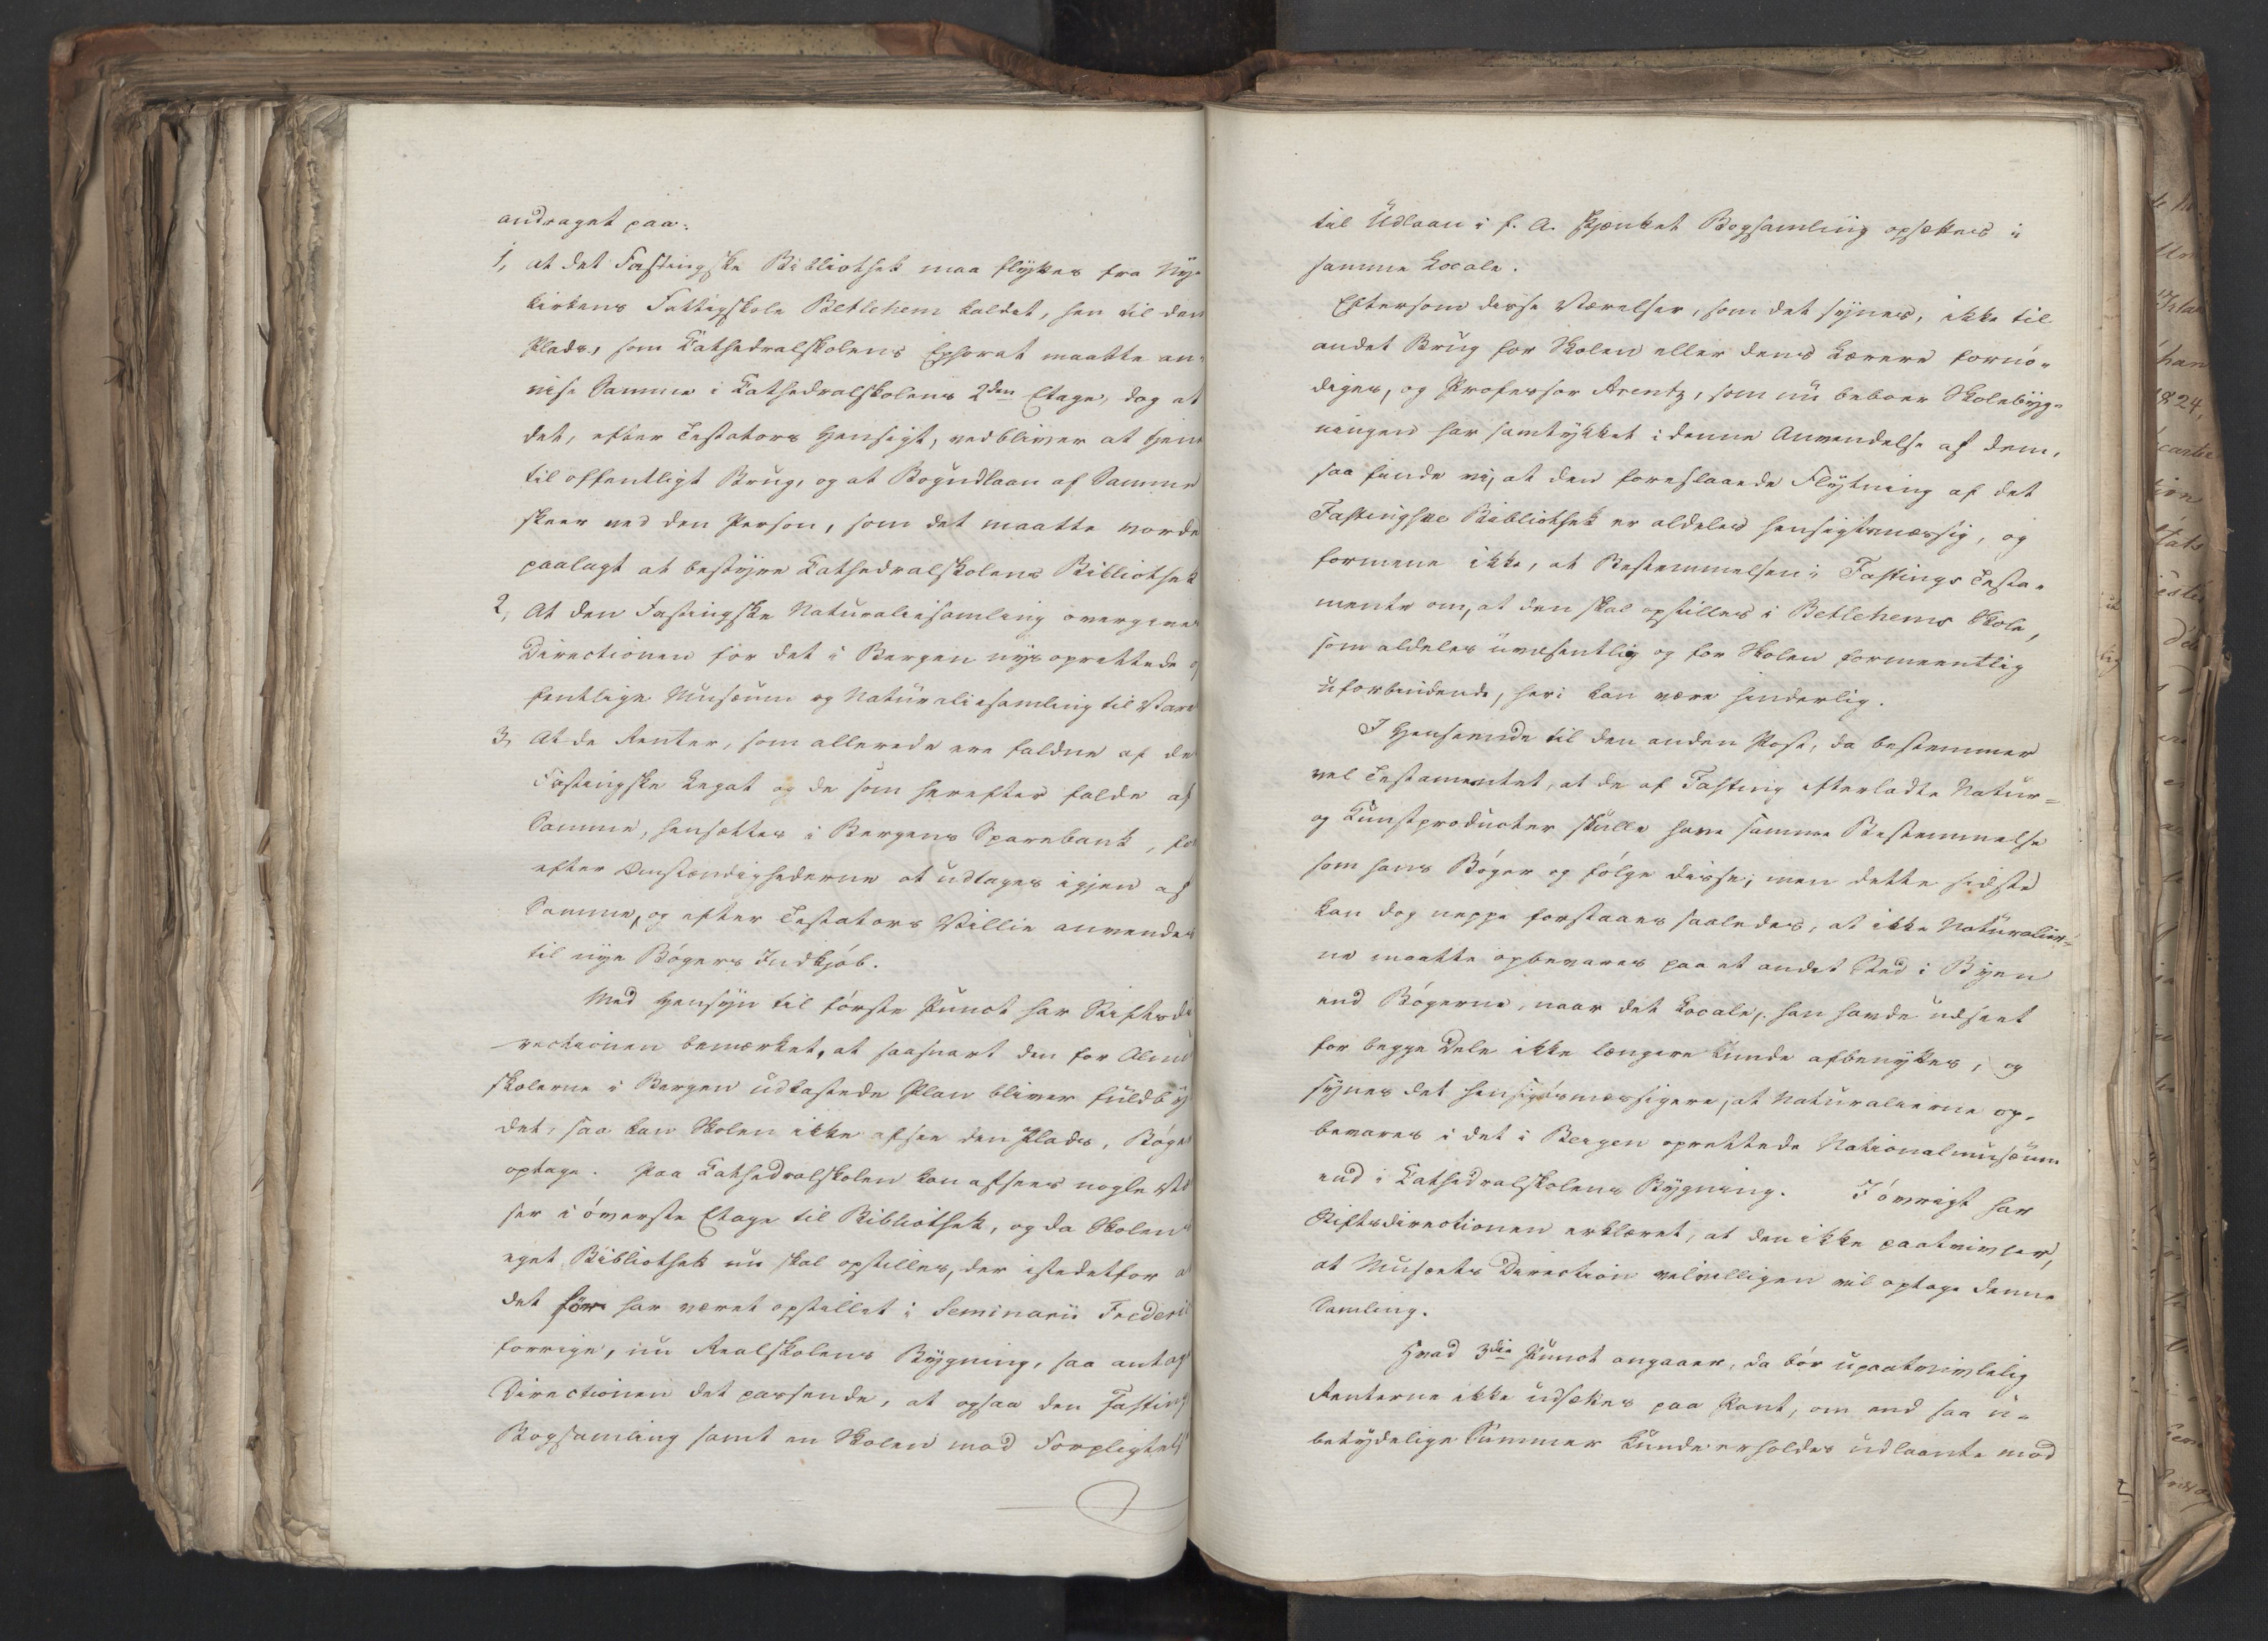 andraget paa:
1, at det Fastingske Bibliothek maa flyttes fra Nye-
kirkens Fattigskole Betlehem kaldet, hen til den
Plads, som Kathedralskolens Ephorat maatte an-
vise Samme i Kathedralskolens 2den Etage, dog at
det, efter Testators Hensigt, vedbliver at tjene
til offentligt Brug, og at Bogudlaan af Samme
skeer ved den Person, som det maatte vorde
paalagt at bestyre Kathedralskolens Bibliothek
2, At den Fastingske Naturaliesamling overgives
Directionen for det i Bergen nys oprettede of
fentlige Musæum og Naturaliesamling til Vare
3, At de Renter, som allerede ere faldne af de
Fastingske Legat og de som herefter falde af
Samme, hensættes i Bergens Sparebank, for
efter Omstændighederne at udtages igjen af
Samme, og efter Testators Villie anvendes
til nye Bøgers Indkjøb.
Med Hensyn til første Punct har Stiftsdi
rectionen bemærket, at saasnart den for Almue
skolerne i Bergen udkastede Plan bliver fuldby
det, saa kan Skolen ikke afsee den Plads, Bøger
optage. Paa Kathedralskolen kan afsees nogle Væ
ser i øverste Etage til Bibliothek, og da Skolens
eget Bibliothek nu skal opstilles, der istedetfor at
det før har været opstillet i Seminarii Frederic
forrige, nu Realskolens Bygning, saa antag
Directionen det passende, at ogsaa den Fasting
Bogsamling samt en Skolen mod Forpligtels
til Udlaan i f. A. skjænket Bogsamling opsættes i
samme Locale.
Eftersom disse Værelser, som det synes, ikke til
andet Brug for Skolen eller dens Lærere fornø-
diges, og Professor Arentz, som nu beboer Skolebyg-
ningen har samtykket i denne Anvendelse af dem,
saa finde vi, at den foreslaaede Flytning af det
Fastingske Bibliothek er aldeles hensigtsmæssig, og
formene ikke, at Bestemmelsen i Fastings Testa-
mente om, at den skal opstilles i Betlehems Skole,
som aldeles uvæsentlig og for Skolen formeentlig
uforbindende, heri kan være hinderlig.
I Henseende til den anden Post, da bestemmer
vel Testamentet, at de af Fasting efterladte Natur-
og Kunstproducter skulle have samme Bestemmelse
som hans Bøger og følge disse; men dette sidste
kan dog neppe forstaaes saaledes, at ikke Naturalier-
ne maatte opbevares paa et andet Sted i Byen
end Bøgerne, naar det Locale, han havde udseet
for begge Dele ikke længere kunde afbenyttes, og
synes det hensigtsmæssigere, at Naturalierne op-
bevares i det i Bergen oprettede Nationalmusæum
end i Kathedralskolens Bygning. I øvrigt har
Stiftsdirectionen erklæret, at den ikke paatvivler,
at Musæets Direction velvilligen vil optage denne
Samling.
Hvad 3die Punct angaaer, da bør upaatvivlelig
Renterne ikke udsættes paa Pant, om end saa u-
betydelige Summer kunde erholdes udlaante mod